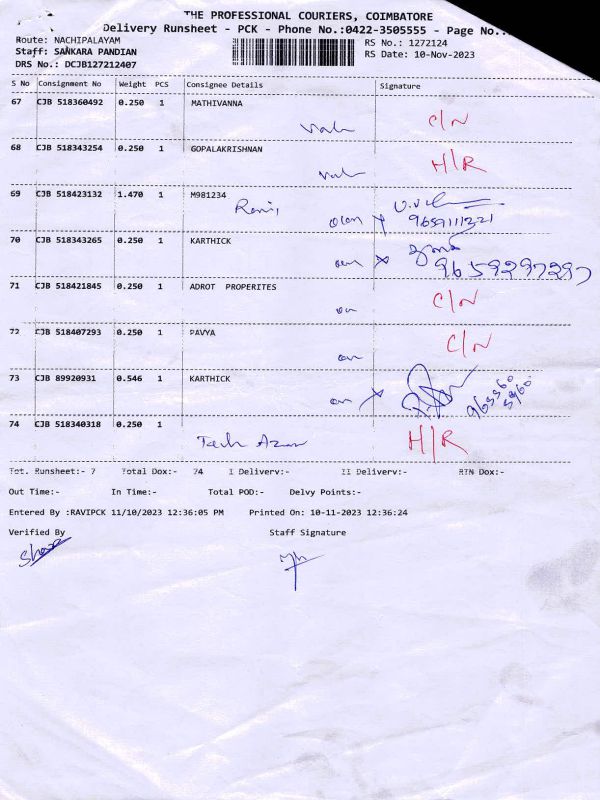 THE PROFESSIONAL COURIERS, COIMBATORE
Delivery Runsheet - PCK - Phone No.:0422-3505555 - Page No..
Route: NACHIPALAYAM RS No.: 1272124
Staff: SANKARA PANDIAN RS Date: 10-Nov-2023
DRS No.: DCJB127212407
S No Consignment No Weight PCS Consignee Details Signature
67 CJB 518360492 0.250 1 MATHIVANNA
C/N
68 CJB 518343254 0.250 1 GOPALAKRISHNAN
H/R
69 CJB 518423132 1.470 1 M981234
9659111321
70 CJB 518343265 0.250 1 KARTHICK
9659297297
71 CJB 518421845 0.250 1 ADROT PROPERITES
C/N
72 CJB 518407293 0.250 1 PAVYA
C/N
73 CJB 89920931 0.546 1 KARTHICK
74 CJB 518340318 0.250 1
H/R
Tot. Runsheet:- 7 Total Dox:- 74 I Delivery:- II Delivery:- RTN Dox:-
Out Time:- In Time:- Total POD:- Delvy Points:-
Entered By :RAVIPCK 11/10/2023 12:36:05 PM Printed On: 10-11-2023 12:36:24
Verified By Staff Signature